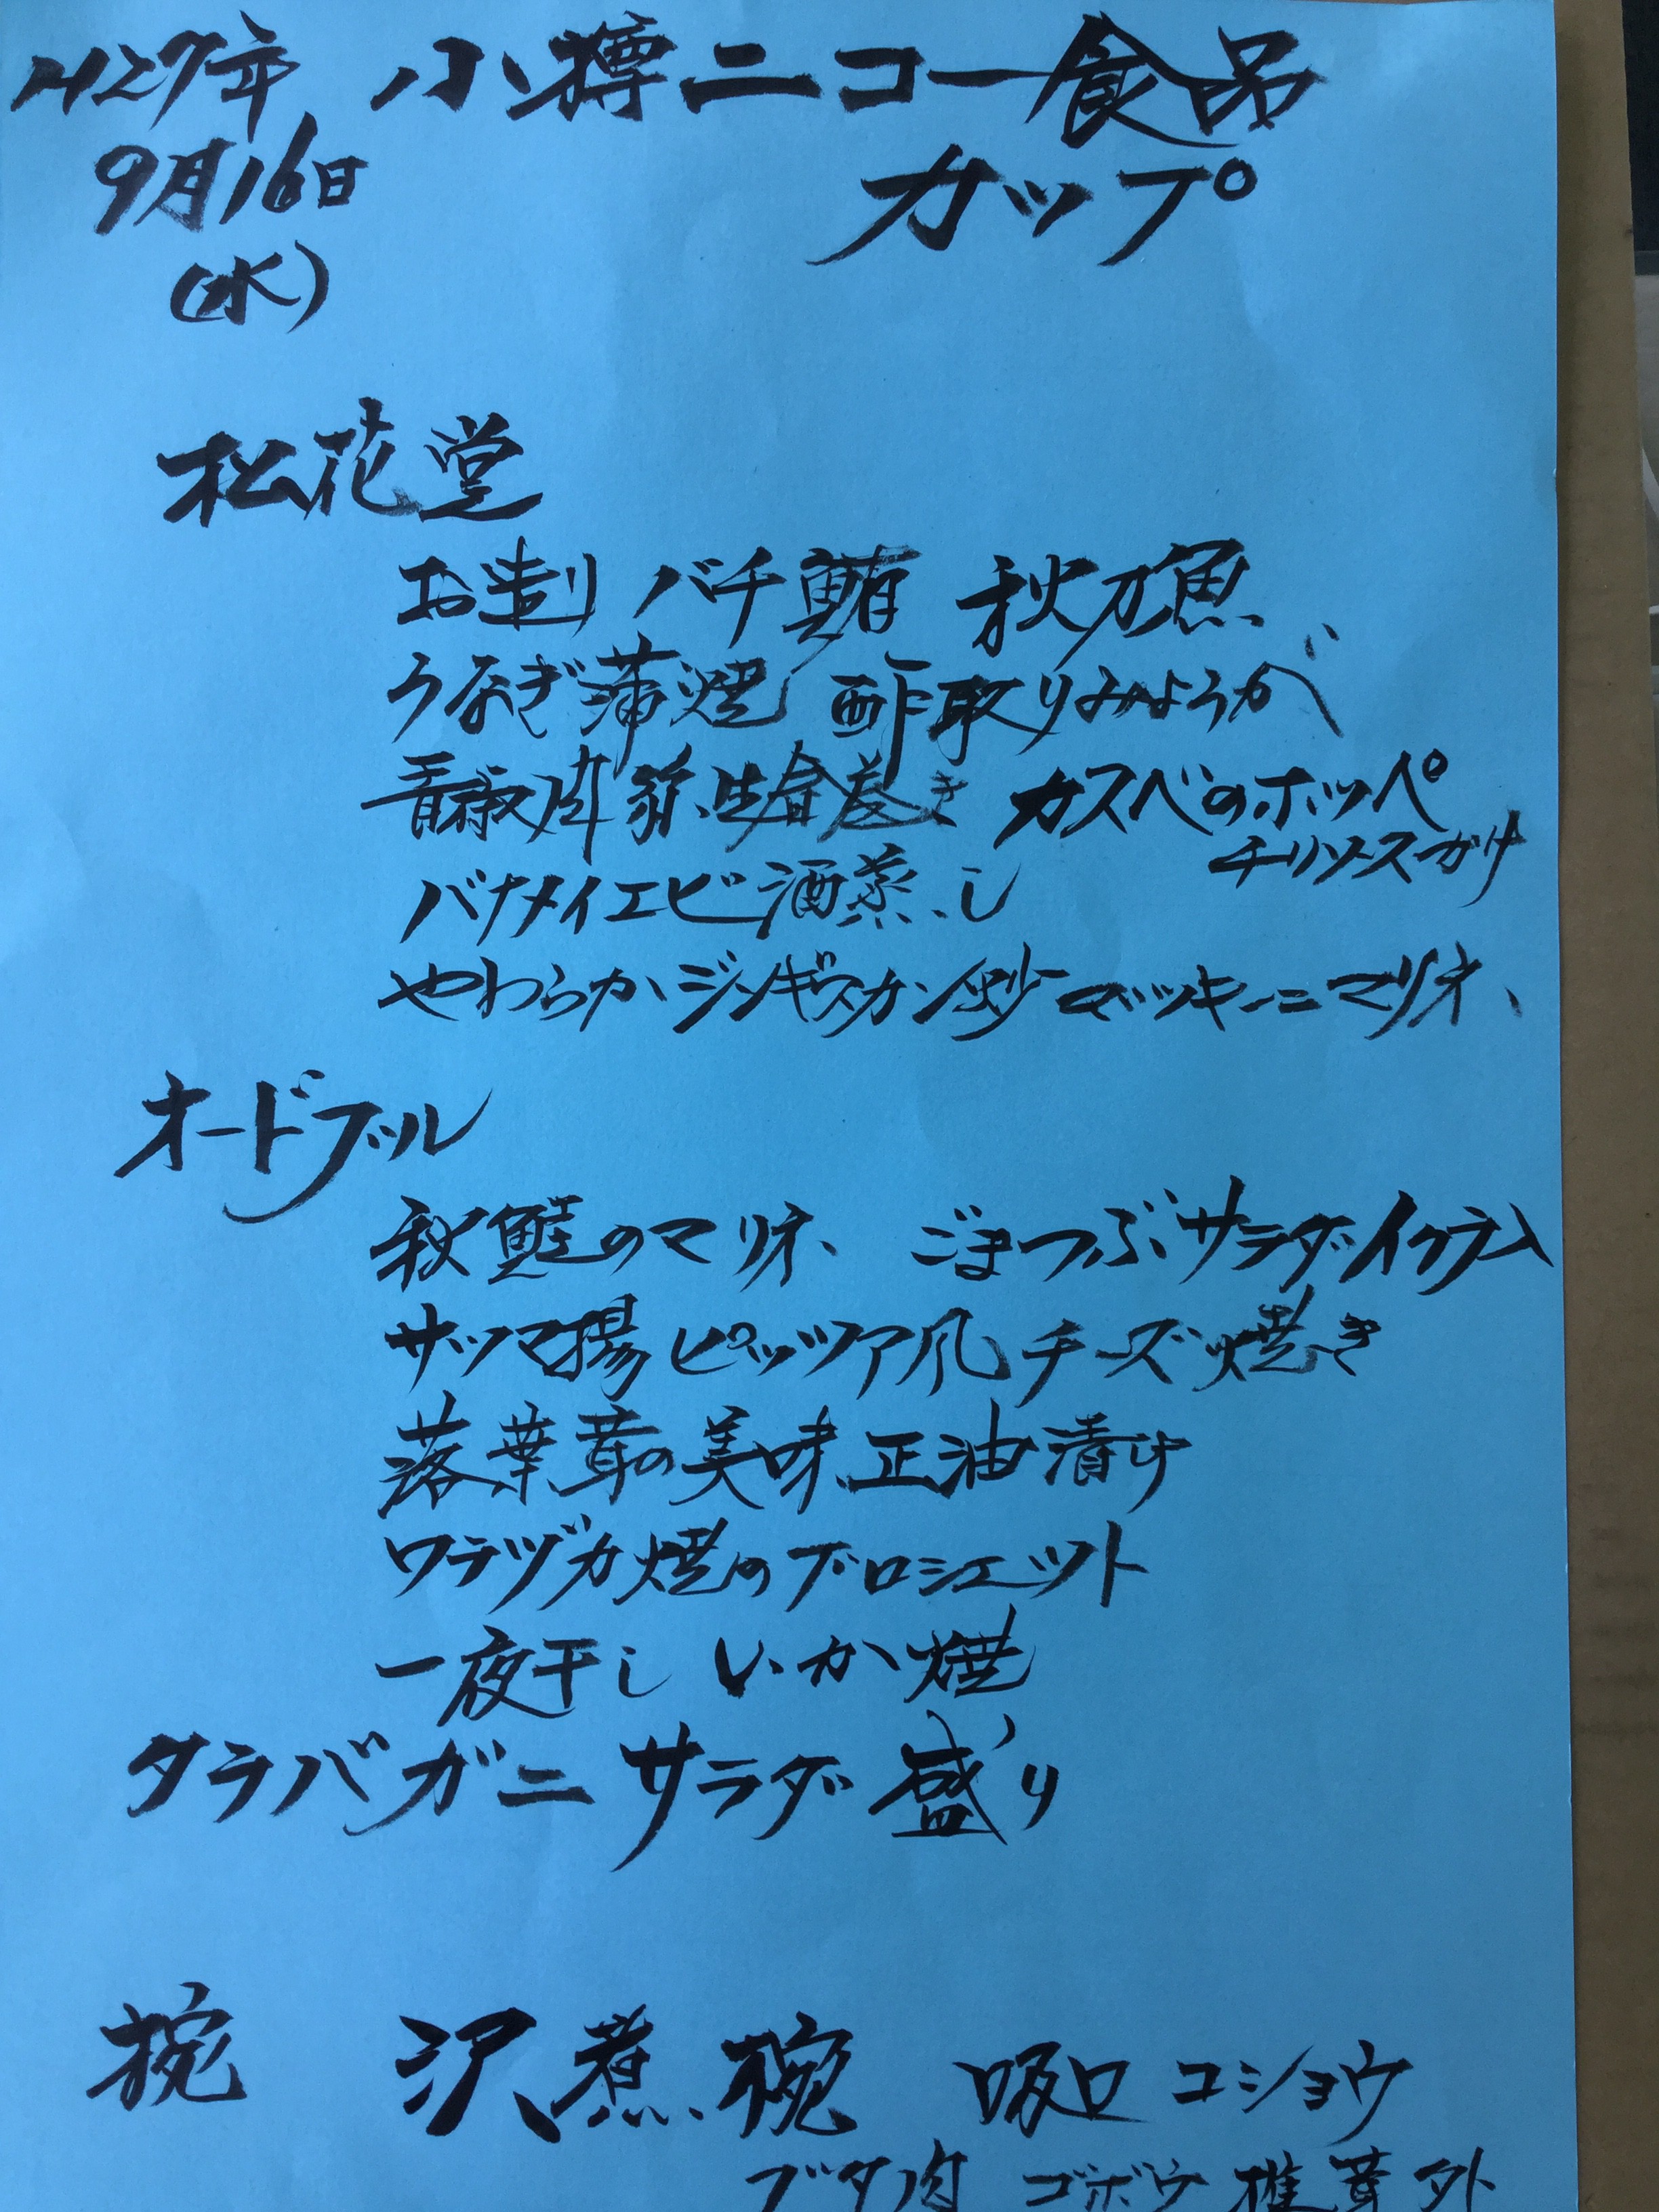 H27年 小樽ニコー食品
9月16日 カップ
(水)
松花堂
お造り バチ鮪 秋刀魚
うなぎ蒲焼 酢取りみょうが
青椒肉絲生春巻き カスベのホッペ
チリソースかけ
バナメイエビ酒蒸し
やわらかジンギスカン炒 ズッキーニマリネ
オードブル
秋鮭のマリネ ごまつぶサラダイクラ入
サツマ揚ピッツァ風チーズ焼き
落葉茸の美味正油漬け
ワラヅカ焼のブロシェット
一夜干しいか焼
タラバガニサラダ盛り
椀 沢煮椀 吸口 コショウ
ブタ肉 ゴボウ 椎茸 外